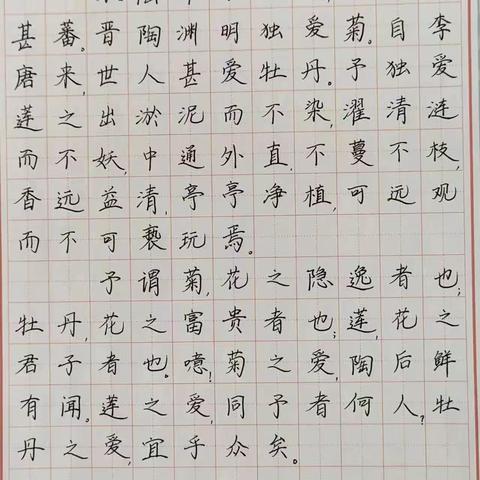 甚蕃。晋陶渊明独爱菊。自李
唐来,世人甚爱牡丹。予独爱
莲之出淤泥而不染,濯清涟
而不妖,中通外直,不蔓不枝,
香远益清,亭亭净植,可远观
而不可亵玩焉。
予谓菊,花之隐逸者也;
牡丹,花之富贵者也;莲,花之
君子者也。噫!菊之爱,陶后鲜
有闻。莲之爱,同予者何人?牡
丹之爱,宜乎众矣。